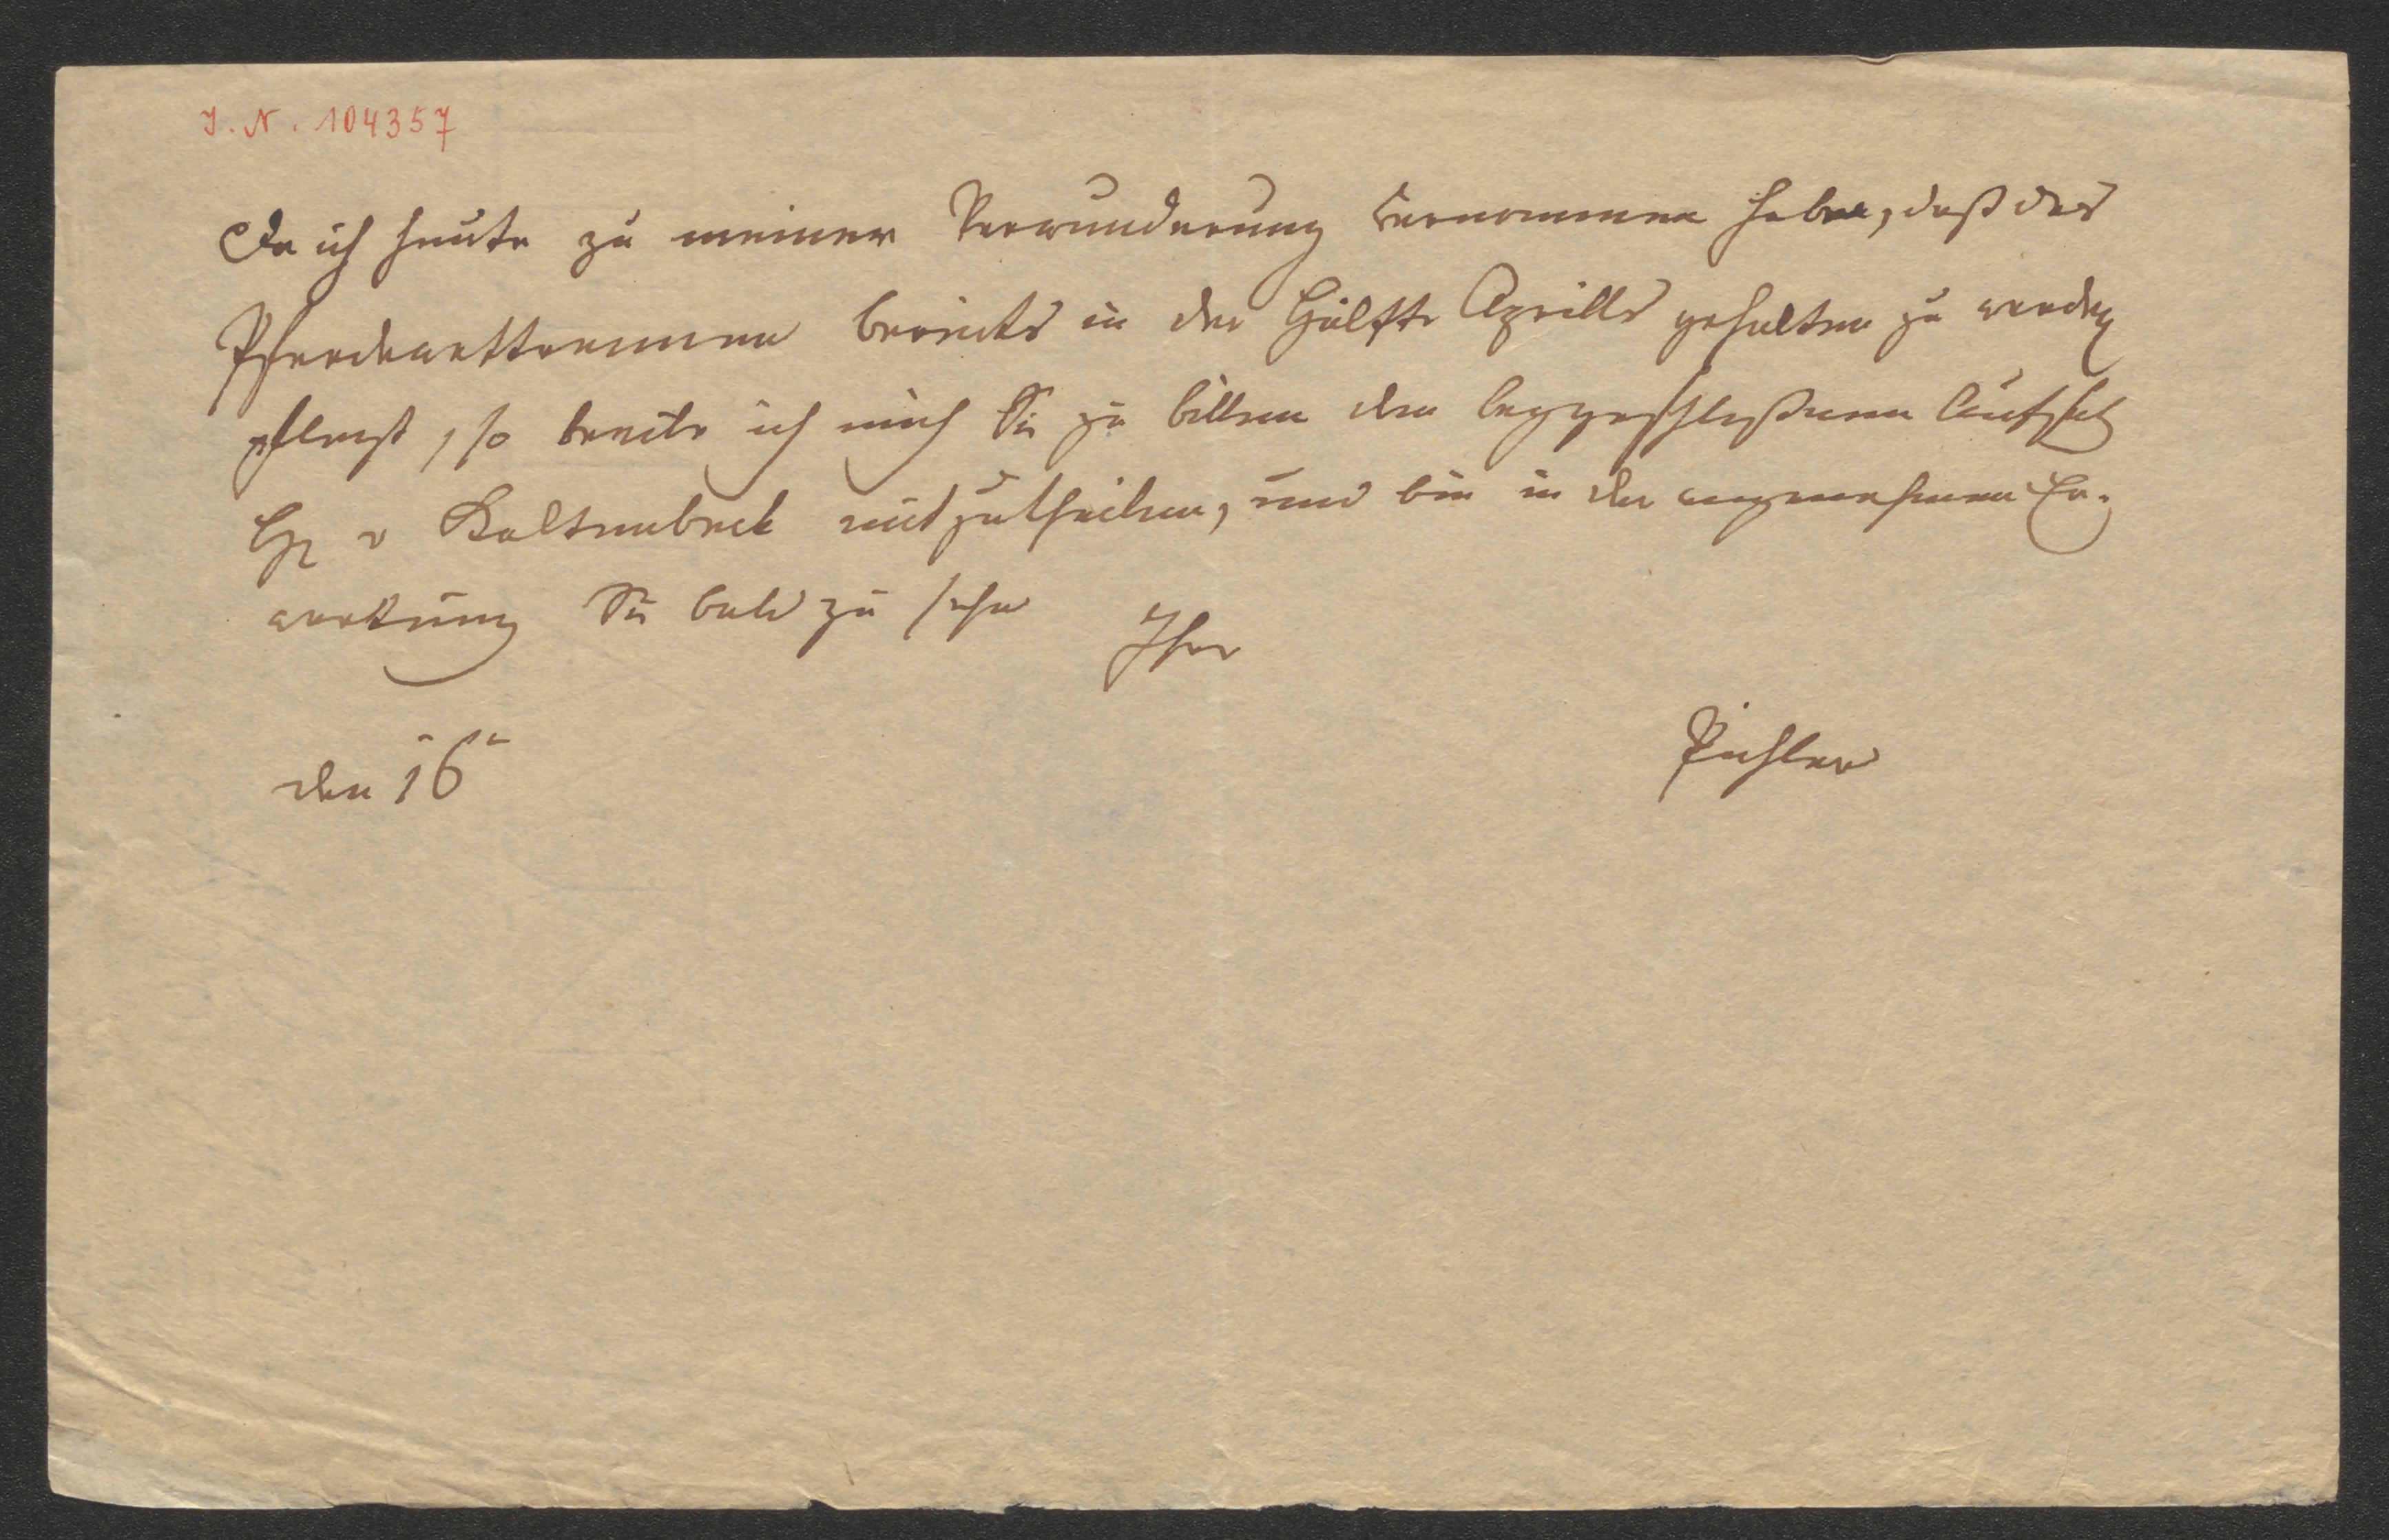 I. N. 104357
Da ich heute zu meiner Verwunderung vernommen habe, daß das
Pferdewettrennen bereits in der Hälfte Aprills gehalten zu werden
pflegt, so beeile ich mich Sie zu bitten den beygeschloßenen Aufsatz
H v Kaltenbaek mitzutheilen, und bin in der angenehmen Er-
wartung Sie bald zu sehn Ihr
den 16
Pichler